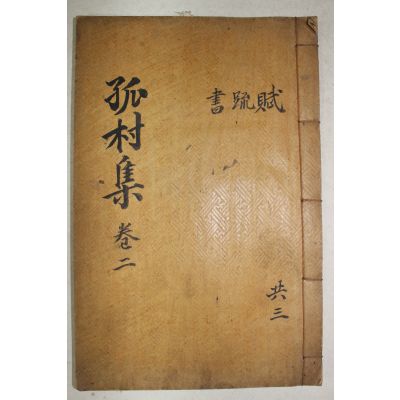 孤村集 卷二
賦疏書
共三